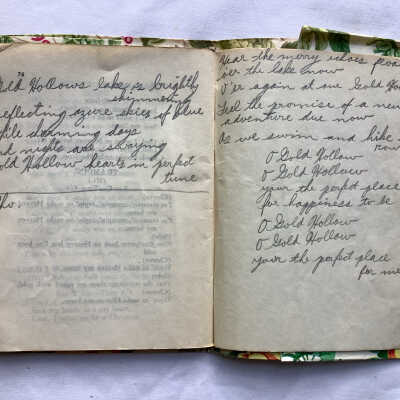 Gold Hollows lake is brightly
shimmering
reflecting azure skies of blue
While warming days
and nights are swaying
Gold Hollow hearts in perfect
tune
Hear the merry echoes
o'er the lake now
We're again at our Gold Hollow
Feel the promise of a new
adventure due now
As we swim and hike
row
O Gold Hollow
O Gold Hollow
your the perfect place
for happiness to be
O Gold Hollow
O Gold Hollow
your the perfect place
for me